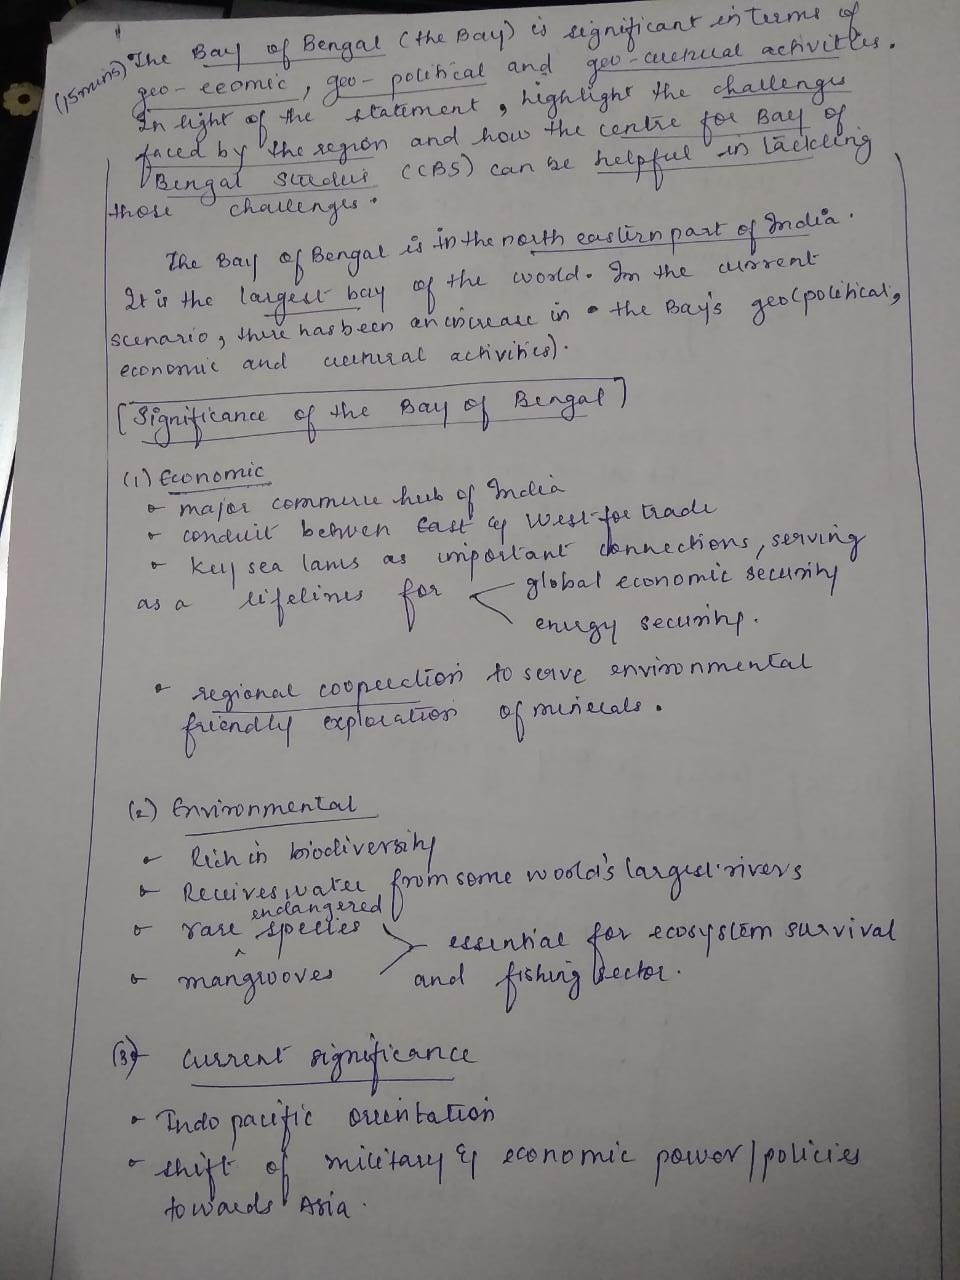 (15 mins) The Bay of Bengal (the Bay) is significant in terms of
geo-ecomic, geo-political and geo-cultural activities.
In light of the statement, highlight the challenges
faced by the region and how the centre for Bay of
Bengal Studies (CBS) can be helpful in tackling
those challenges.
The Bay of Bengal is in the north eastern part of India.
It is the largest bay of the world. In the current
scenario, there has been an increase in the Bay's geo(political,
economic and cultural activities).
[Significance of the Bay of Bengal]
(1) Economic
major commerce hub of India
conduit between East & West for trade
key sea lanes as important connections, serving
as a lifelines for
global economic security
energy security.
regional cooperation to serve environmental
friendly exploration of minerals.
(2) Environmental
Rich in biodiversity
Receives water from some world's largest rivers
endangered
rare ^ species
essential for ecosystem survival
mangrooves
and fishing sector.
(3) Current significance
Indo pacific orientation
shift of military & economic power/policies
towards Asia.